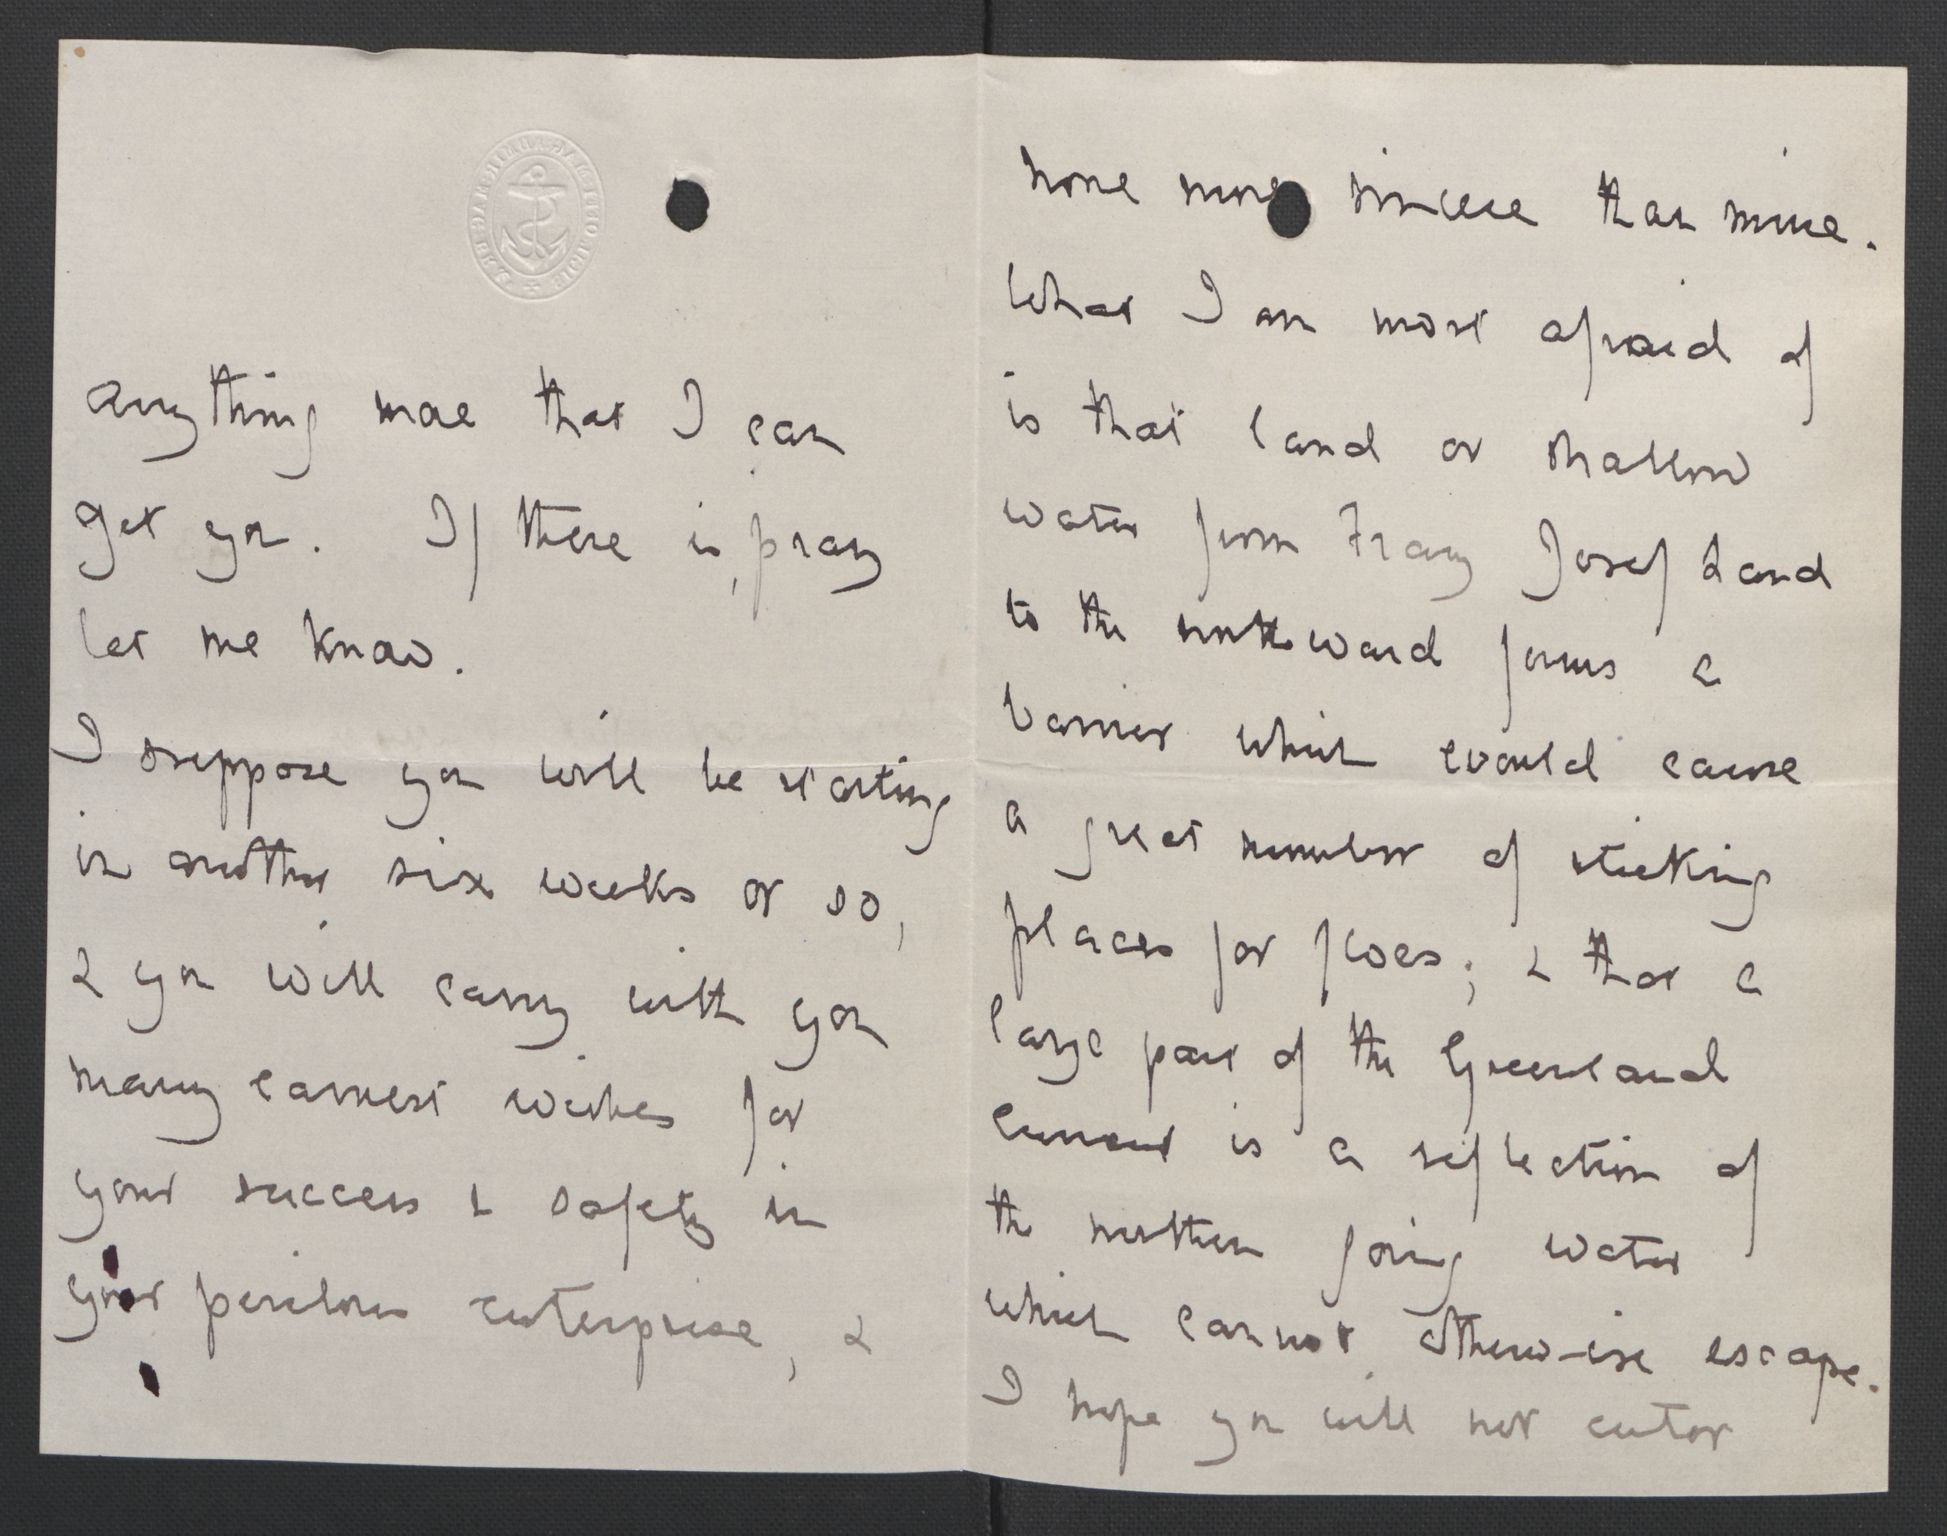 anything more that I can
get you. If there is, pray
let me know.
I suppose you will be starting
in another six weeks or so,
& you will carry with you
many earnest wishes for
your success & safety in
your perilous enterprise, &
none more sincere than mine.
What I am most afraid of
is that land or shallow
water from Franz Josef Land
to the northward forms a
barrier which would cause
a great number of sticking
places for floes; & that a
large part of the Greenland
current is a reflection of
the northern going water
which cannot otherwise escape.
I hope you will not enter